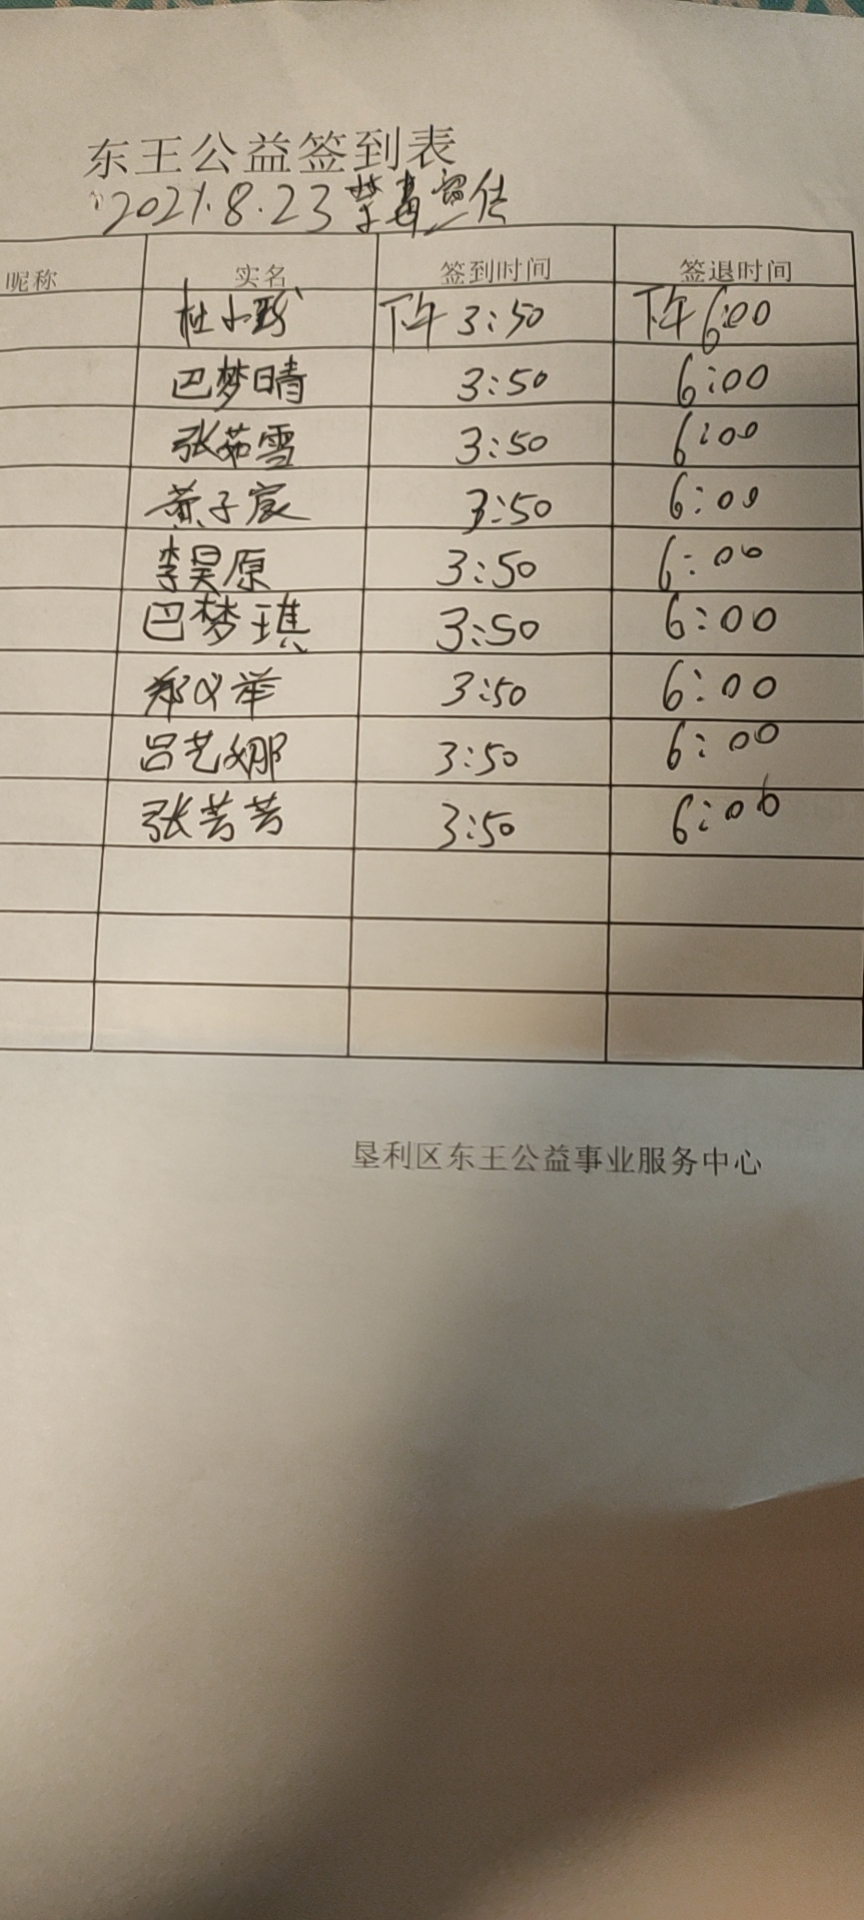 东王公益签到表
2021.8.23 禁毒宣传
昵称 实名 签到时间 签退时间
杜小 下午3:50 下午6:00
巴梦晴 3:50 6:00
张茹雪 3:50 6:00
黄子宸 3:50 6:00
李昊原 3:50 6:00
巴梦琪 3:50 6:00
郑义举 3:50 6:00
吕艺娜 3:50 6:00
张芳芳 3:50 6:00
垦利区东王公益事业服务中心